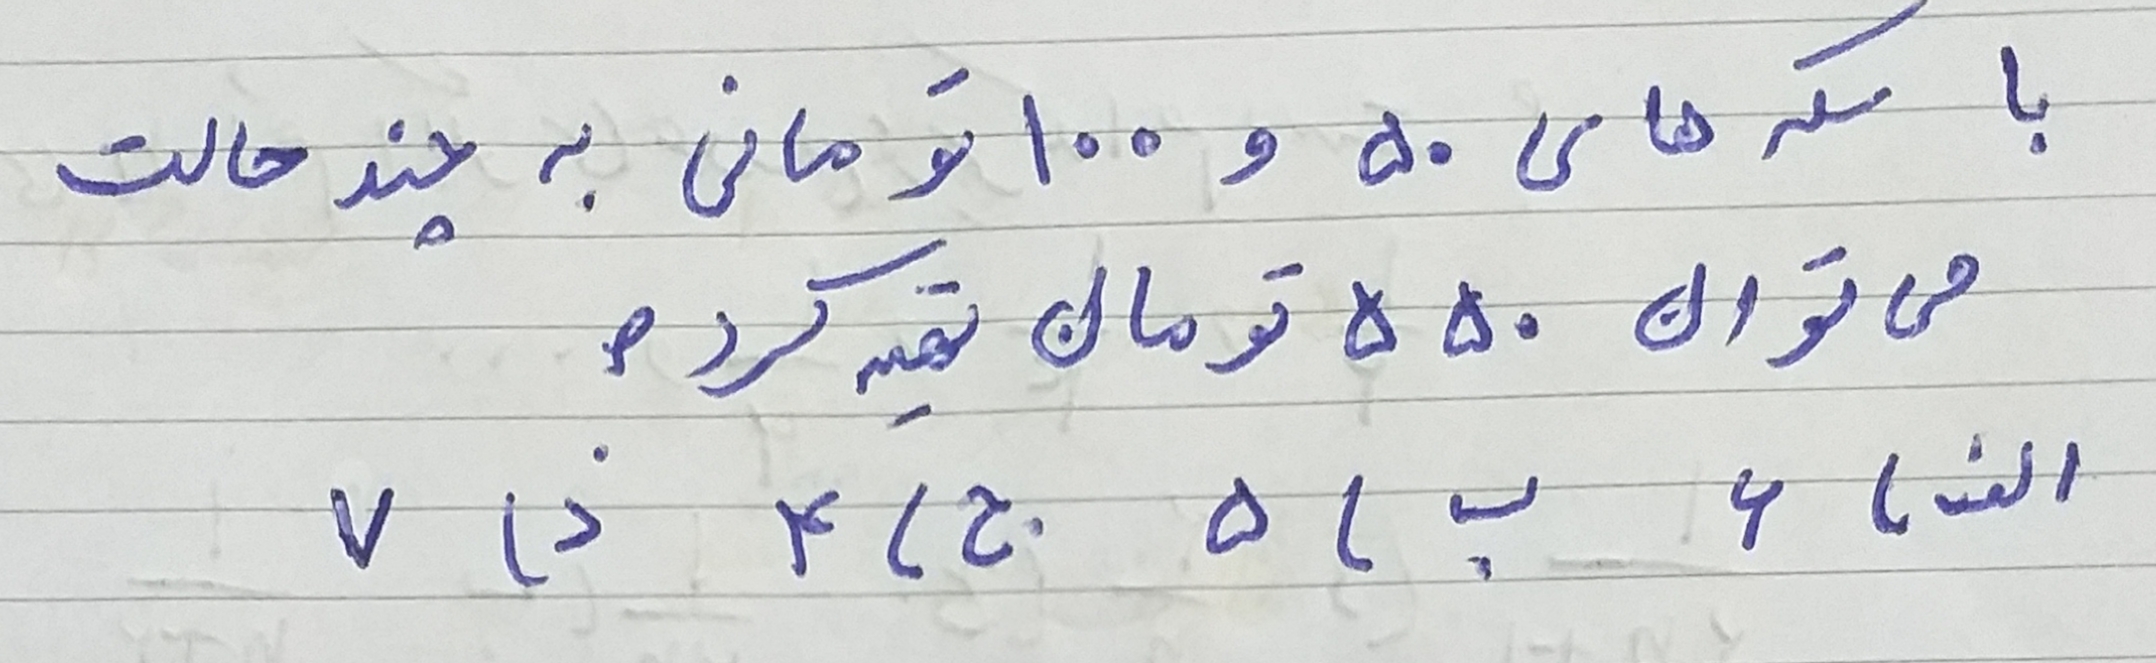 با سکه های ۵۰ و ۱۰۰ تومانی به چند حالت
می توان ۵۵۰ تومان تهیه کرد؟
الف) ۶ ب) ۵ ج) ۴ د) ۷